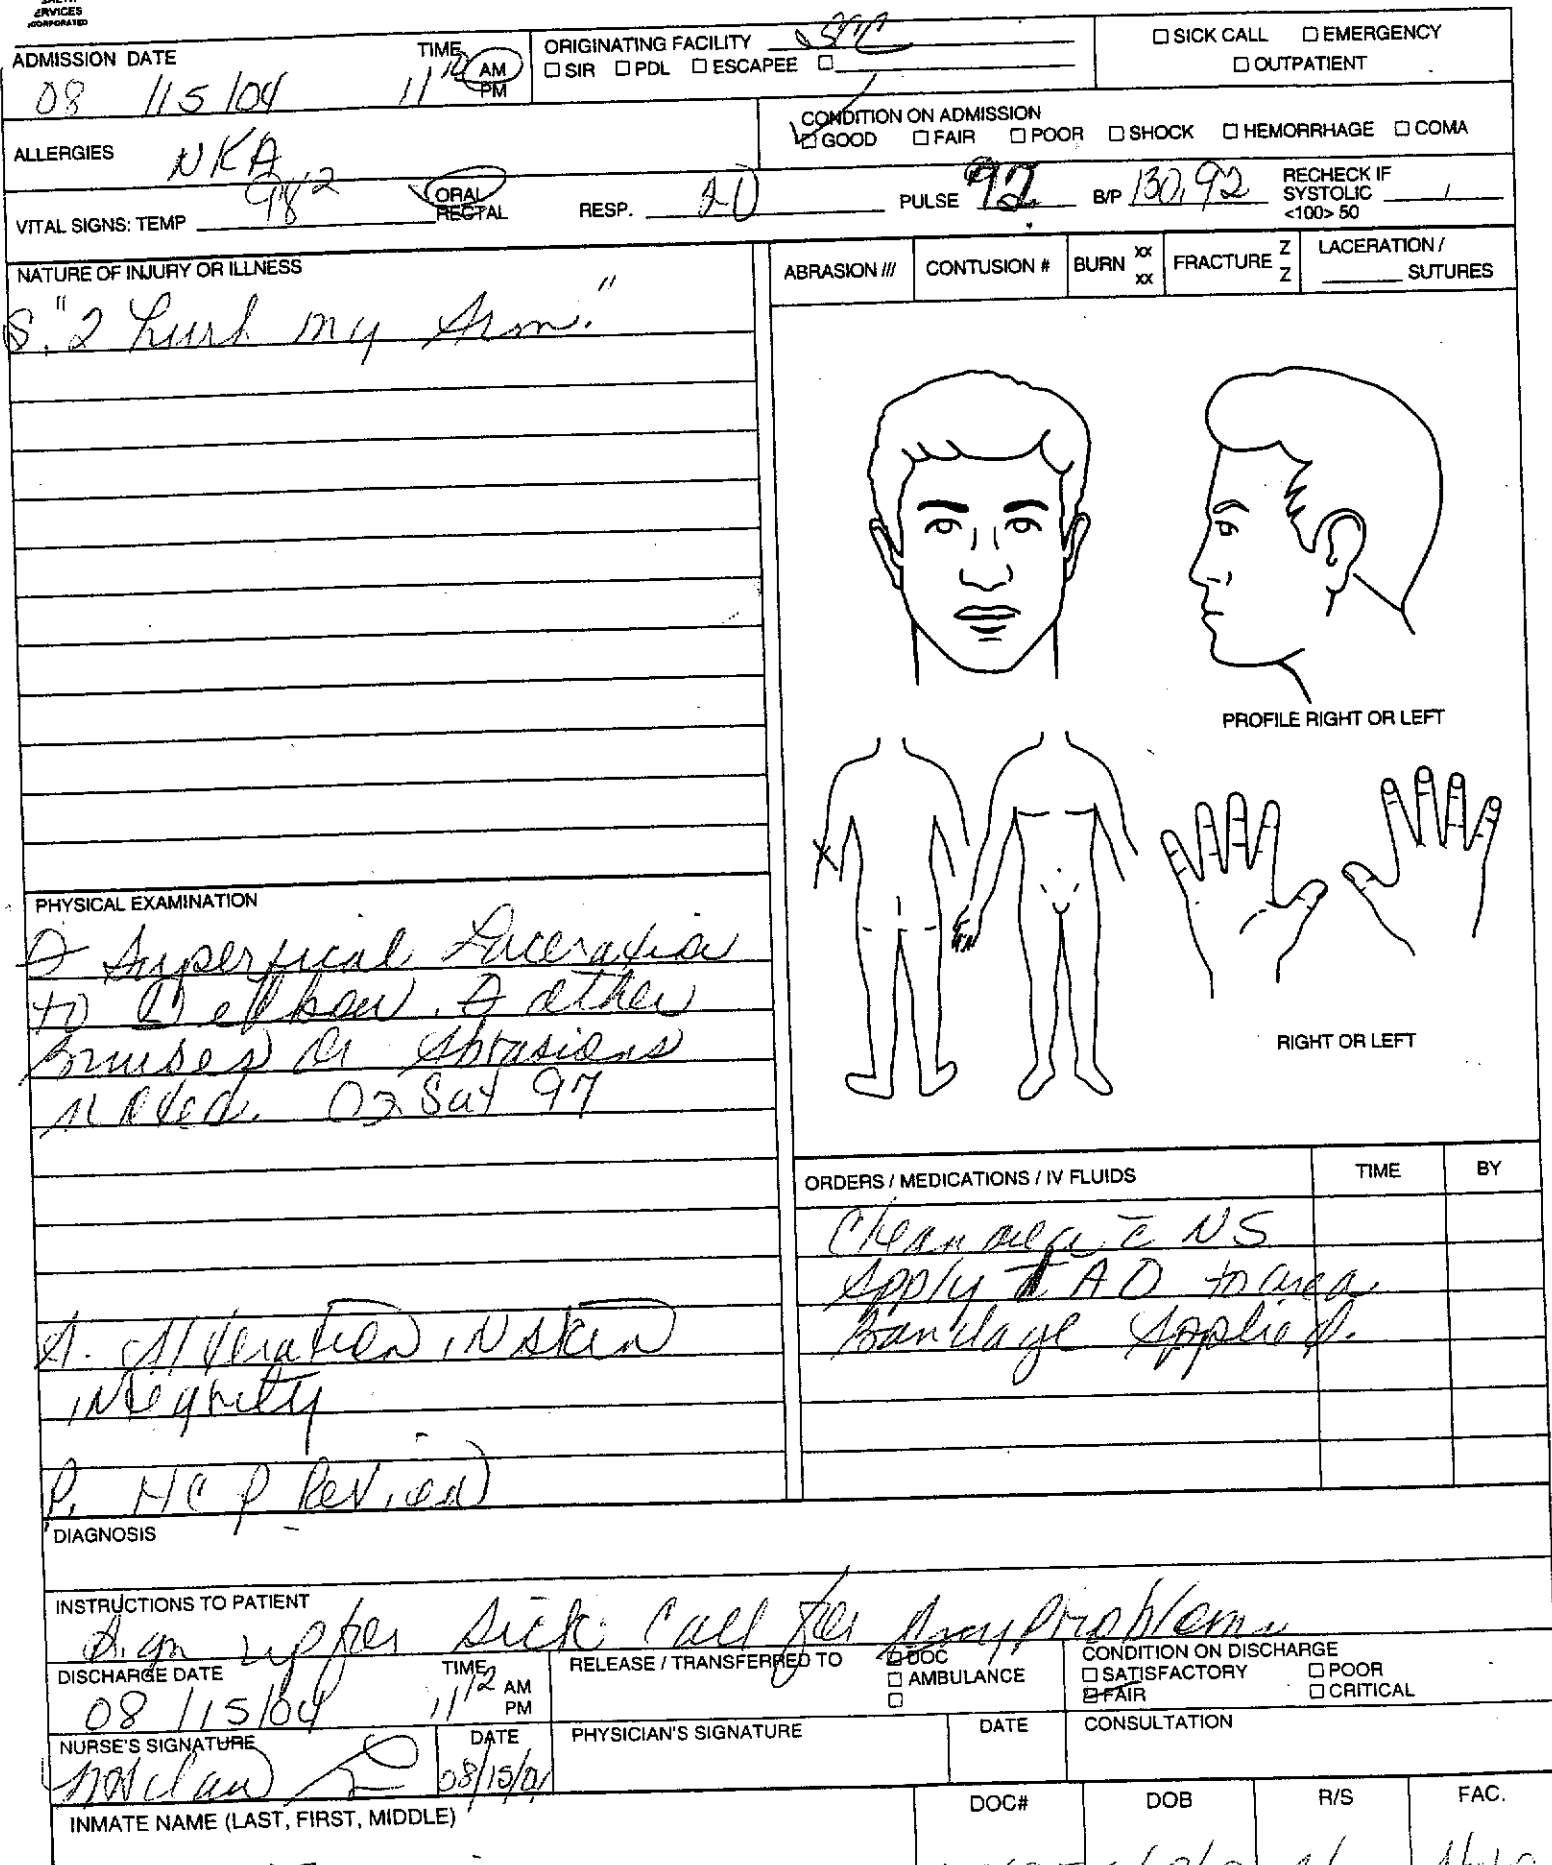 ERVICES
INCORPORATED
ADMISSION DATE
08 / 15 / 04
TIME
AM
PM
ORIGINATING FACILITY
☐ SIR ☐ PDL ☐ ESCAPEE ☐
☐ SICK CALL ☐ EMERGENCY
☐ OUTPATIENT
ALLERGIES NKA
CONDITION ON ADMISSION
☑ GOOD ☐ FAIR ☐ POOR ☐ SHOCK ☐ HEMORRHAGE ☐ COMA
VITAL SIGNS: TEMP 98.2 ORAL RECTAL RESP. 20 PULSE 92 B/P 130/92 RECHECK IF SYSTOLIC <100> 50 /
NATURE OF INJURY OR ILLNESS
S. "I hurt my Arm."
ABRASION /// CONTUSION # BURN xx xx FRACTURE Z Z LACERATION / SUTURES
X
PROFILE RIGHT OR LEFT
RIGHT OR LEFT
PHYSICAL EXAMINATION
Superfical Laceration
to elbow. other
Bruises or Abrasions
noted. O2 Sat 97
A. Alteration in skin
integrity
P. HCP Review
ORDERS / MEDICATIONS / IV FLUIDS TIME BY
Clean area c̄ NS
Apply AO to area
Bandage Applied.
DIAGNOSIS
INSTRUCTIONS TO PATIENT
Sign up for Sick Call for Any Problems
DISCHARGE DATE
08 / 15 / 04
TIME
11 12 AM
PM
RELEASE / TRANSFERRED TO
☑ DOC
☐ AMBULANCE
☐
CONDITION ON DISCHARGE
☐ SATISFACTORY ☐ POOR
☑ FAIR ☐ CRITICAL
NURSE'S SIGNATURE
DATE
08/15/04
PHYSICIAN'S SIGNATURE
DATE
CONSULTATION
INMATE NAME (LAST, FIRST, MIDDLE)
DOC# DOB R/S FAC.